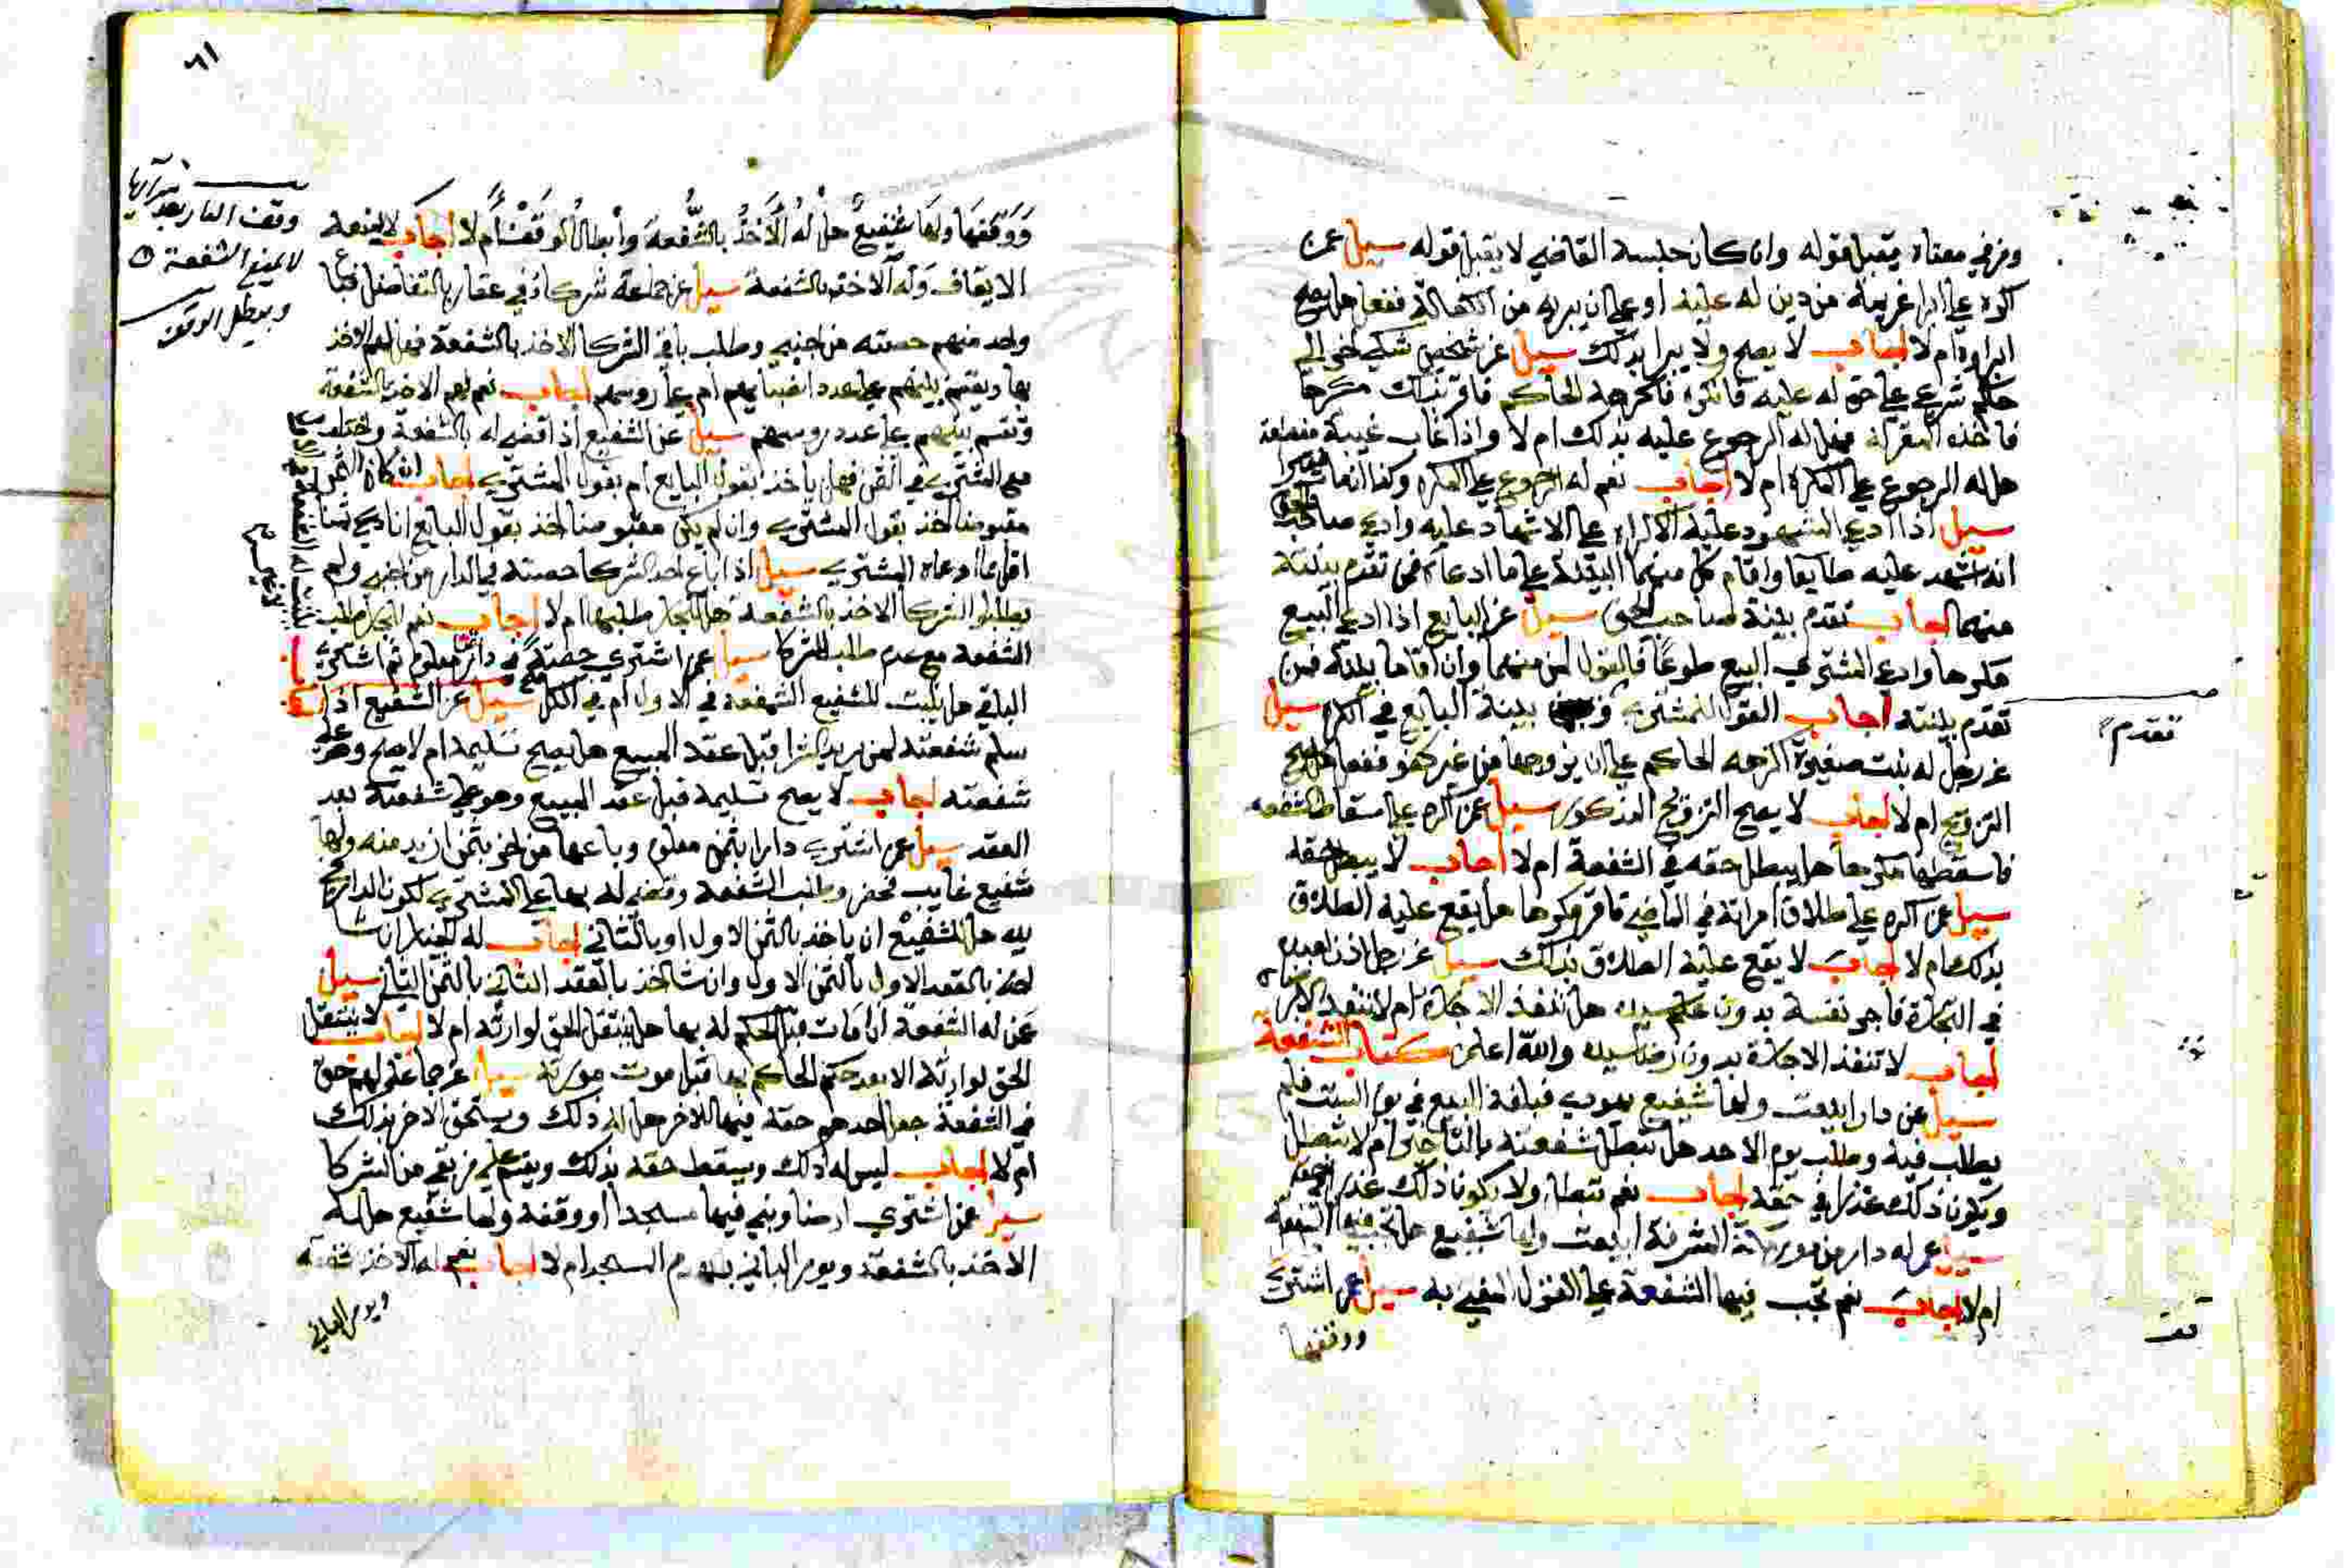 ومن في معناه يقبل قوله وان كان جلسة القاضي لا يقبل قوله سيل عمن
اكره على ابرا غريمه من دين له عليه او على ان يبريه من الكفالة ففعل هل يصح
ابراوه ام لا اجاب لا يصح ولا يبرا بذلك سيل عن شخص شكي اخر الي
حاكم شرعي على حق له عليه فانكره فاكرهه الحاكم فاقر بذلك مكرها
فاخذه المقر له فهل له الرجوع عليه بذلك ام لا واذا غاب غيبة منقطعة
هل له الرجوع على المكره ام لا اجاب نعم له الرجوع على المكره وكذا اذا مات
سيل اذا ادعى المشهود عليه الاكراه على الاشهاد عليه وادعى صاحب
انه اشهد عليه طايعا واقام كل منهما البينة على ما ادعاه فمن تقدم بينته
منهما اجاب تقدم بينة صاحب الحق سيل عن البايع اذا ادعى البيع
مكرها وادعى المشتري البيع طوعا فالقول لمن منهما وان اقاما بينة فمن
تقدم بينته اجاب القول للمشتري و بينة البايع في الكره سيل
عن رجل له بنت صغيرة اكرهه الحاكم على ان يزوجها من غير كفو ففعل هل يصح
التزويج ام لا اجاب لا يصح التزويج المذكور سيل عمن اكره على اسقاط الشفعة
فاسقطها مكرها هل يبطل حقه في الشفعة ام لا اجاب لا يبطل حقه
سيل عمن اكره على طلاق امراته في الماضي فاقر مكرها هل يقع عليه الطلاق
بذلك ام لا اجاب لا يقع عليه الطلاق بذلك سيل عن رجل اذن لعبده
في التجارة فاجر نفسه بدون علم سيده هل تنفذ الاجارة ام لا تنفذ
اجاب لا تنفذ الاجارة بدون رضا سيده والله اعلم كتاب الشفعة
سيل عن دار ابيعت ولها شفيع يهودي فبلغه البيع في يوم السبت فلم
يطلب فيه وطلب يوم الاحد هل تبطل شفعته بالتاخير ام لا تبطل
ويكون ذلك عذرا في حقه اجاب نعم تبطل ولا يكون ذلك عذرا في حقه
سيل عمن له دار من المشرفة ابيعت ولها شفيع هل تجب فيها الشفعة
ام لا اجاب نعم تجب فيها الشفعة على القول المفتي به سيل عمن اشترى
ووقفها
تقدم
قف
٦١
ووقفها ولها شفيع هل له الاخذ بالشفعة وابطال الوقف ام لا اجاب لا يمنعه
الايقاف وله الاخذ بالشفعة سيل عن جماعة شركاء في عقار بالتفاضل فباع
واحد منهم حصته من اجنبي وطلب باقي الشركا الاخذ بالشفعة فهل لهم الاخذ
بها ويقتسم بينهم على عدد انصبايهم ام على روسهم اجاب نعم لهم الاخذ بالشفعة
وتقسم بينهم على عدد روسهم سيل عن الشفيع اذا قضي له بالشفعة واختلف
مع المشتري في الثمن فهل ياخذ بقول البايع ام بقول المشتري اجاب ان كان الثمن
مقبوضا اخذ بقول المشتري وان لم يكن مقبوضا اخذ بقول البايع ان ادعى ثمنا
اقل مما ادعاه المشتري سيل اذا باع احد الشركا حصته في الدار من اخر ولم
يطلب الشركا الاخذ بالشفعة هل للجار طلبها ام لا اجاب نعم للجار طلب
الشفعة مع عدم طلب الشركا سيل عمن اشتري حصة في دار بثمن معلوم ثم اشترى
الباقي هل يثبت للشفيع الشفعة في الاول ام في الكل سيل عن الشفيع اذا
سلم شفعته لمن يريد الشرا قبل عقد المبيع هل يصح تسليمه ام لا يصح وهو على
شفعته اجاب لا يصح تسليمه قبل عقد المبيع وهو على شفعته بعد
العقد سيل عمن اشتري دارا بثمن معلوم وباعها من اخر بثمن ازيد منه ولها
شفيع غايب فحضر وطلب الشفعة وقضي له بها على المشتري لكون الدار في
يده هل للشفيع ان ياخذ بالثمن الاول او بالثاني اجاب له الخيار ان شا
اخذ بالعقد الاول بالثمن الاول وان شا اخذ بالعقد الثاني بالثمن الثاني سيل
عمن له الشفعة اذا مات قبل الحكم له بها هل ينتقل الحق لوارثه ام لا اجاب لا ينتقل
الحق لوارثه الا بعد حكم الحاكم بها قبل موت مورثه سيل عن جماعة لهم حق
في الشفعة جعل احدهم حقه فيها للاخر هل له ذلك ويستحق الاخر بذلك
ام لا اجاب ليس له ذلك ويسقط حقه بذلك ويقسم على من بقي من الشركا
سيل عمن اشتري ارضا وبني فيها مسجدا او وقفه ولها شفيع هل له
الاخذ بالشفعة ويومر الباني بهدم المسجد ام لا اجاب نعم له الاخذ بشفعته
ويومر الباني
وقف الدار بعد شرايها
لا يمنع الشفعة
ويبطل الوقف